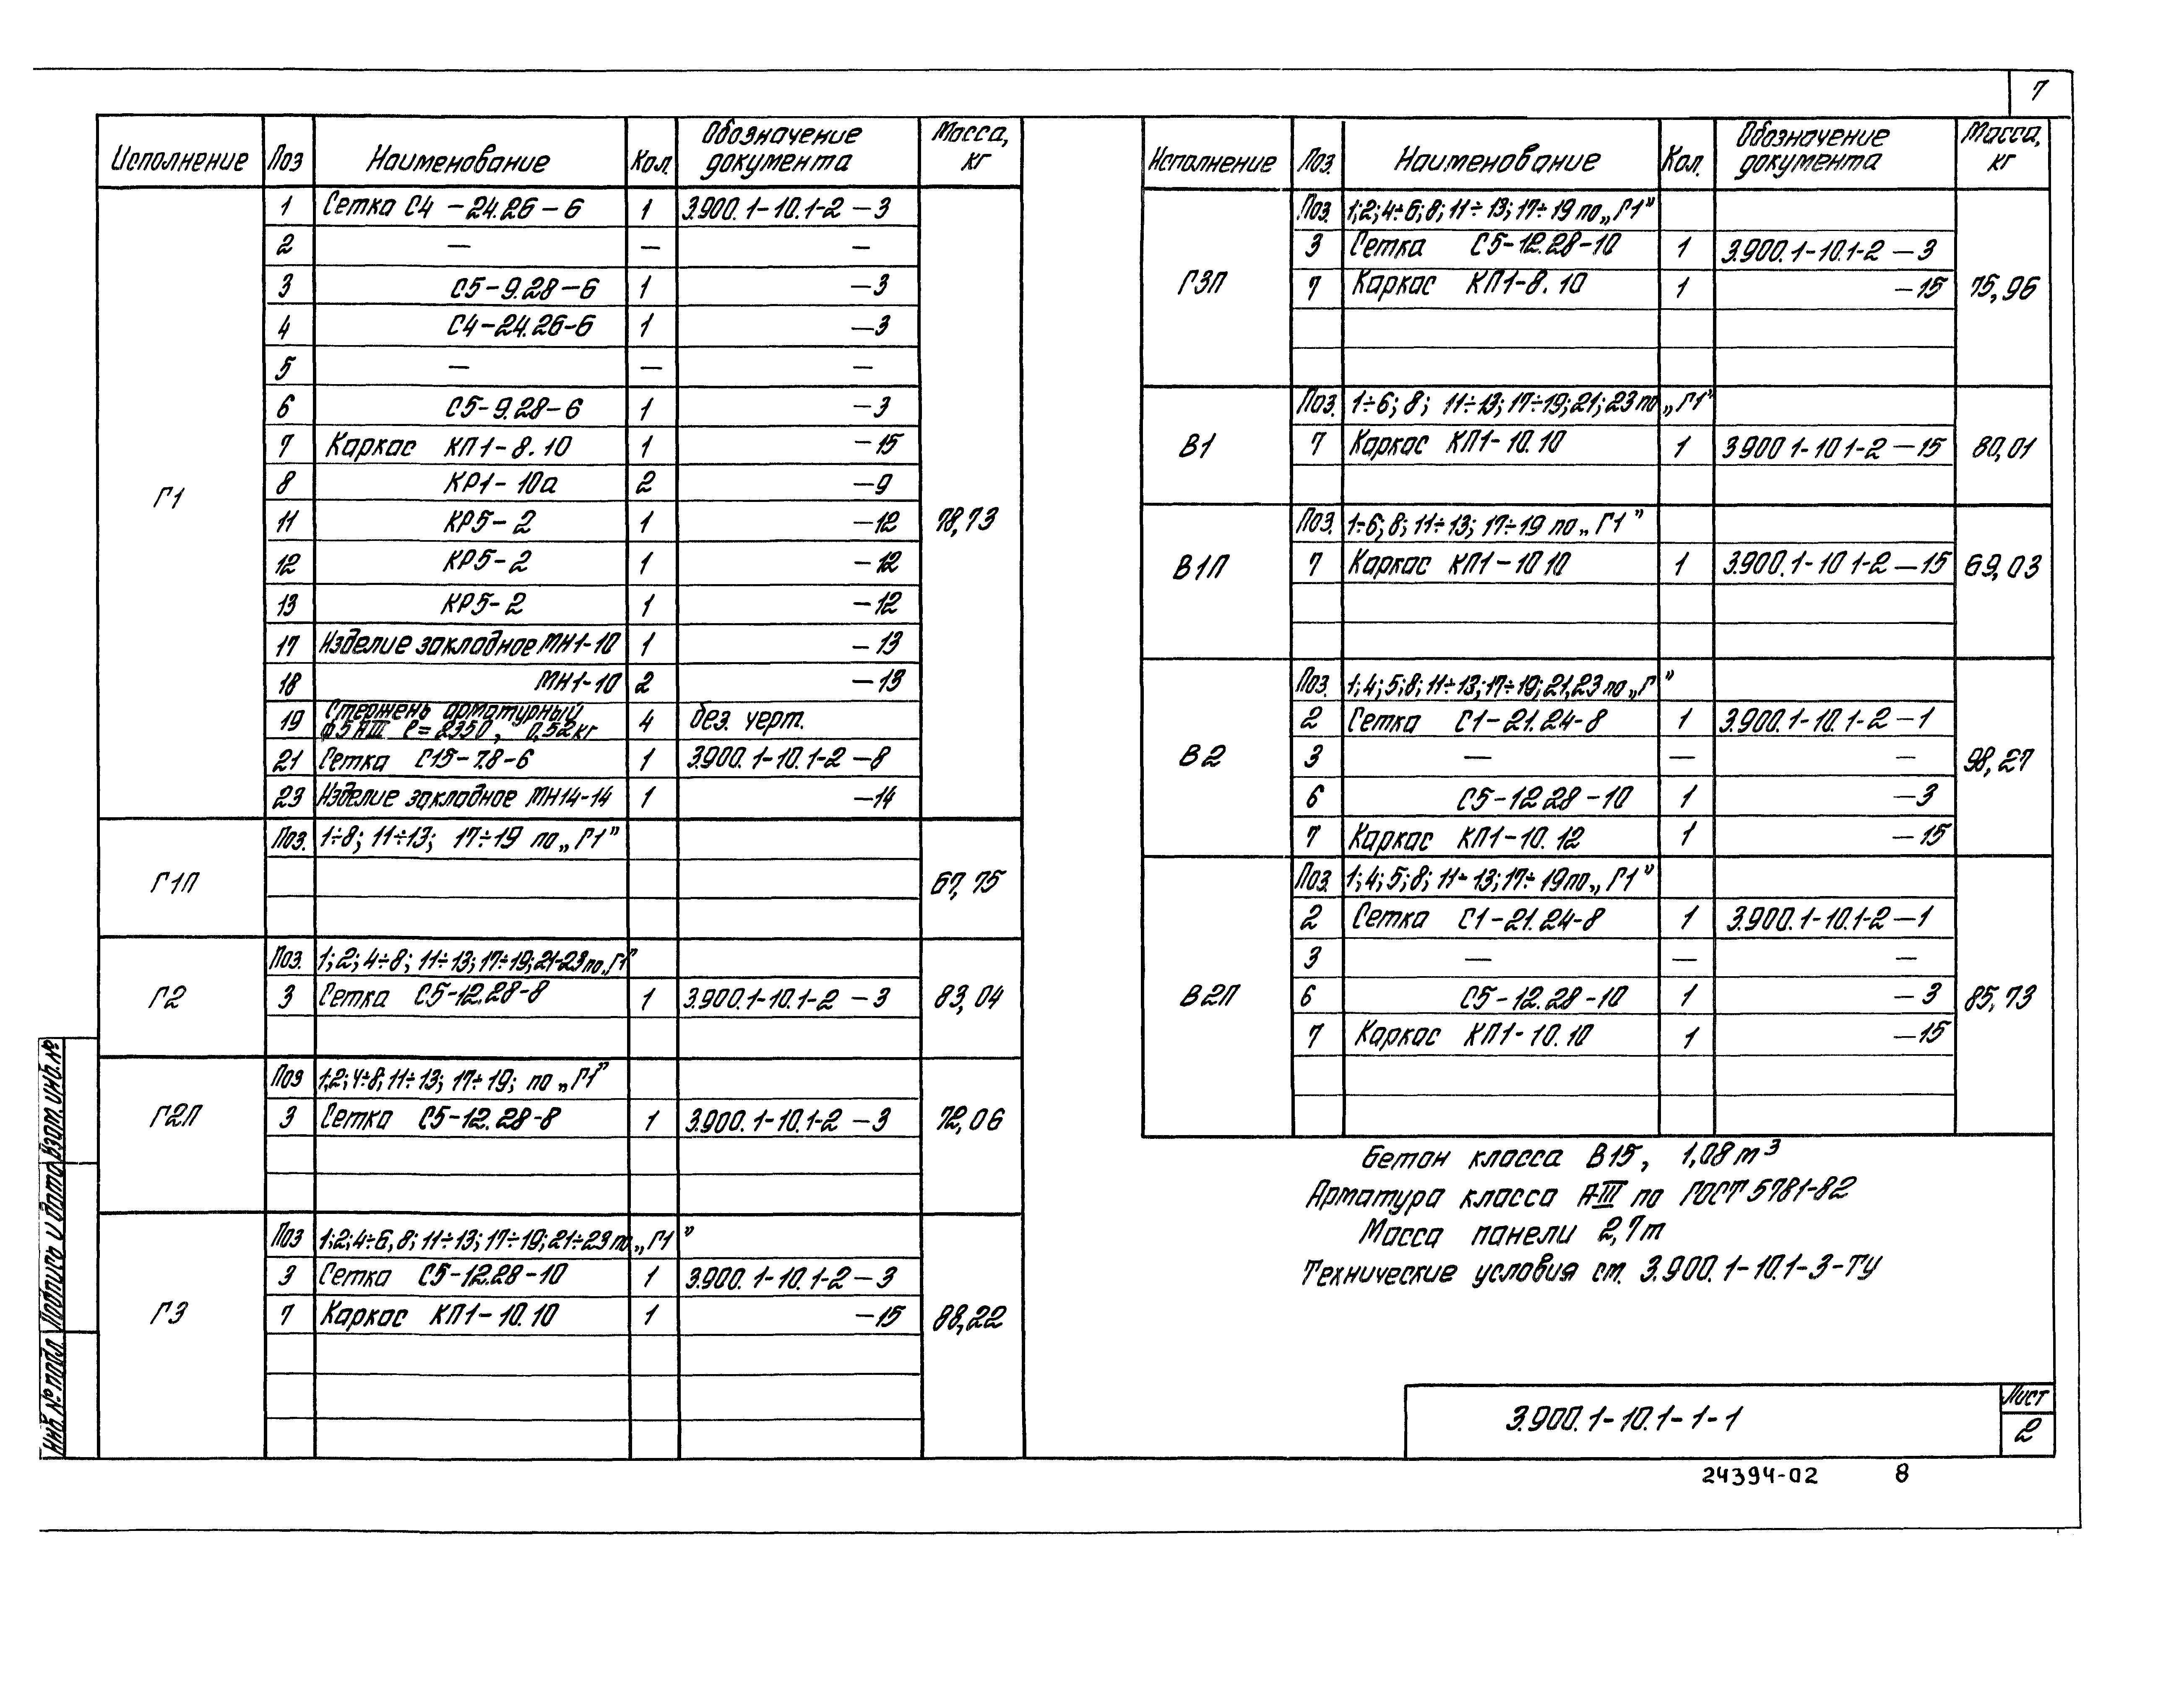 7
Исполнение Поз Наименование Кол. Обозначение документа Масса, кг
Г1 78,73
1 Сетка С4-24.26-6 1 3.900.1-10.1-2-3
2 — — —
3 С5-9.28-6 1 -3
4 С4-24.26-6 1 -3
5 — — —
6 С5-9.28-6 1 -3
7 Каркас КП1-8.10 1 -15
8 КР1-10а 2 -9
11 КР5-2 1 -12
12 КР5-2 1 -12
13 КР5-2 1 -12
17 Изделие закладное МН1-10 1 -13
18 МН1-10 2 -13
19 Стержень арматурный ф5АIII ℓ=2350, 0,52кг 4 без. черт.
21 Сетка С15-7.8-6 1 3.900.1-10.1-2-8
23 Изделие закладное МН14-14 1 -14
Г1П 67,75
Поз. 1÷8; 11÷13; 17÷19 по „Г1"
Г2 83,04
Поз. 1; 2; 4÷8; 11÷13; 17÷19; 21÷23 по „Г1"
3 Сетка С5-12.28-8 1 3.900.1-10.1-2-3
Г2П 72,06
Поз 1;2; 4÷8; 11÷13; 17÷19; по „Г1"
3 Сетка С5-12.28-8 1 3.900.1-10.1-2-3
Г3 88,22
Поз 1;2;4÷6,8; 11÷13; 17÷19; 21÷23 по „Г1"
3 Сетка С5-12.28-10 1 3.900.1-10.1-2-3
7 Каркас КП1-10.10 1 -15
Исполнение Поз. Наименование Кол. Обозначение документа Масса, кг
Г3П 75,96
Поз. 1;2;4÷6;8; 11÷13; 17÷19 по „Г1"
3 Сетка С5-12.28-10 1 3.900.1-10.1-2-3
7 Каркас КП1-8.10 1 -15
В1 80,01
Поз. 1÷6; 8; 11÷13; 17÷19; 21; 23 по „Г1"
7 Каркас КП1-10.10 1 3.900 1-10 1-2-15
В1П 69,03
Поз. 1÷6; 8; 11÷13; 17÷19 по „Г1"
7 Каркас КП1-10 10 1 3.900.1-10 1-2-15
В2 98,27
Поз. 1; 4; 5; 8; 11÷13; 17÷19; 21,23 по „Г "
2 Сетка С1-21.24-8 1 3.900.1-10.1-2-1
3 — — —
6 С5-12 28-10 1 -3
7 Каркас КП1-10.12 1 -15
В2П 85,73
Поз. 1; 4; 5; 8; 11÷13; 17÷19 по „Г1"
2 Сетка С1-21.24-8 1 3.900.1-10.1-2-1
3 — — —
6 С5-12.28-10 1 -3
7 Каркас КП1-10.10 1 -15
Бетон класса В15, 1,08 м³
Арматура класса А-III по ГОСТ 5781-82
Масса панели 2,7т
Технические условия ст. 3.900.1-10.1-3-ТУ
3.900.1-10.1-1-1
Лист
2
24394-02 8
Инв. № подл. Подпись и дата Взам. инв. №